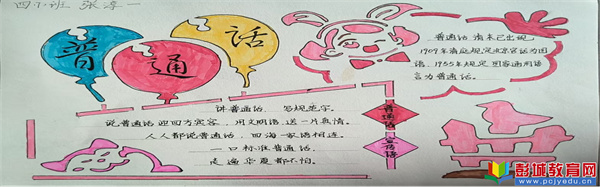 四(1)班 张淳一
普通话
普通话 清末已出现,
1909年清庭规定北京官话为国
语,1955年规定国家通用语
言为普通话。
讲普通话, 写规范字。
说普通话迎四方宾客, 用文明语送一片真情。
人人都说普通话, 四海一家语相连。
一口标准普通话,
走遍华夏都不怕。
普通话
宣传语
彭城教育网
www.pcjyedu.cn